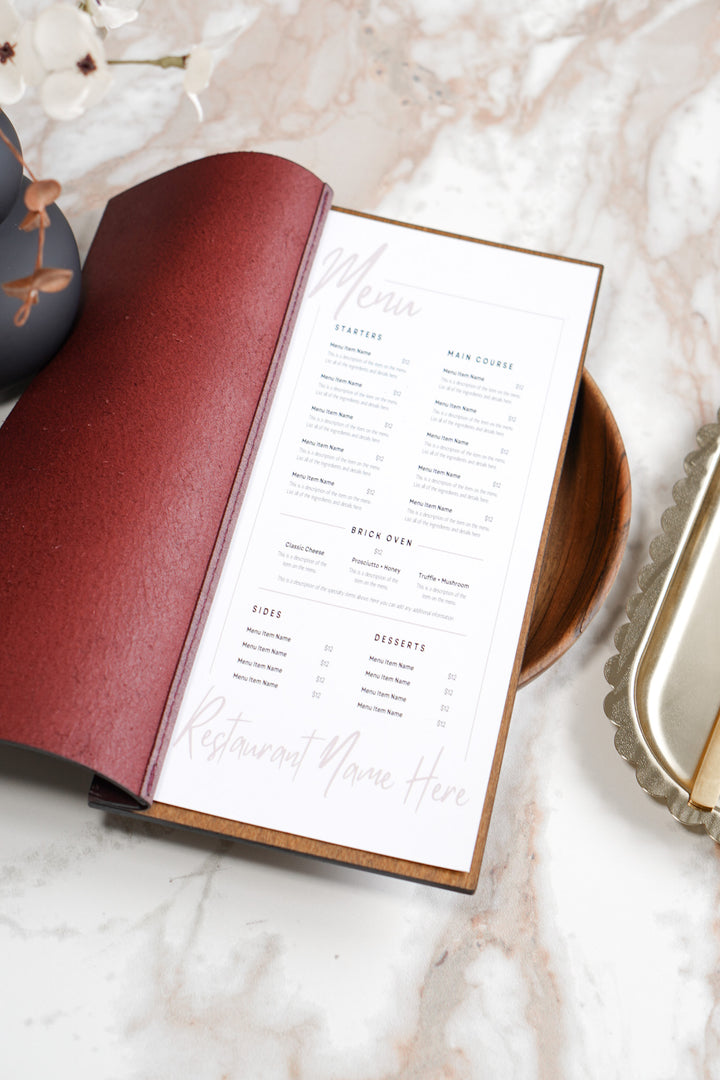 Menu
STARTERS
Menu Item Name $12
This is a description of the item on the menu.
List all of the ingredients and details here.
Menu Item Name $12
This is a description of the item on the menu.
List all of the ingredients and details here.
Menu Item Name $12
This is a description of the item on the menu.
List all of the ingredients and details here.
Menu Item Name $12
This is a description of the item on the menu.
List all of the ingredients and details here.
Menu Item Name $12
This is a description of the item on the menu.
List all of the ingredients and details here.
MAIN COURSE
Menu Item Name $12
This is a description of the item on the menu.
List all of the ingredients and details here.
Menu Item Name $12
This is a description of the item on the menu.
List all of the ingredients and details here.
Menu Item Name $12
This is a description of the item on the menu.
List all of the ingredients and details here.
Menu Item Name $12
This is a description of the item on the menu.
List all of the ingredients and details here.
Menu Item Name $12
This is a description of the item on the menu.
List all of the ingredients and details here.
BRICK OVEN
$12
Classic Cheese
This is a description of the
item on the menu.
Prosciutto + Honey
This is a description of the
item on the menu.
Truffle + Mushroom
This is a description of the
item on the menu.
This is a description of the specialty items above, here you can add any additional information.
SIDES
Menu Item Name $12
Menu Item Name $12
Menu Item Name $12
Menu Item Name $12
DESSERTS
Menu Item Name $12
Menu Item Name $12
Menu Item Name $12
Menu Item Name $12
Restaurant Name Here